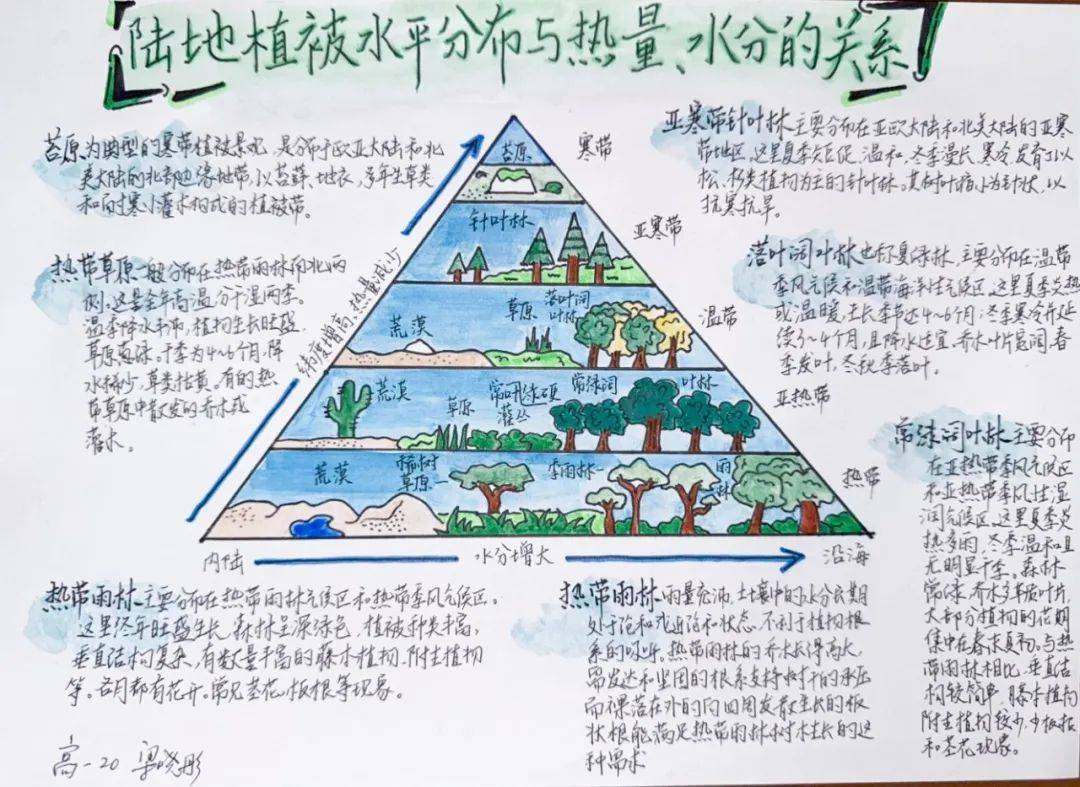 陆地植被水平分布与热量、水分的关系
苔原为典型的寒带植被景观,是分布于欧亚大陆和北
美大陆的北部边缘地带,以苔藓、地衣、多年生草类
和耐寒小灌木构成的植被带。
热带草原一般分布在热带雨林南北两
侧,这是全年高温,分干湿两季。
湿季降水丰沛,植物生长旺盛,
草原葱绿,干季为4~6个月,降
水稀少,草类枯黄。有的热
带草原中散发的乔木或
灌木。
纬度增高,热量减少
苔原
寒带
针叶林
亚寒带
荒漠
草原
落叶阔
叶林
温带
荒漠
草原
常叶绿硬
灌丛
常绿阔
叶林
亚热带
荒漠
稀树
草原
季雨林
雨
林
热带
内陆
水分增大
沿海
亚寒带针叶林主要分布在亚欧大陆和北美大陆的亚寒
带地区,这里夏季短促、温和,冬季漫长、寒冷,发育了以
松、杉类植物为主的针叶林。其树叶缩小为针状,以
抗寒抗旱。
落叶阔叶林也称夏绿林,主要分布在温带
季风气候和温带海洋性气候区,这里夏季炎热
或温暖,生长季节达4~6个月;冬季寒冷并延
续3~4个月,且降水适宜,乔木叶片宽阔,春
季发叶,冬秋季落叶。
常绿阔叶林主要分布
在亚热带季风气候区
和亚热带季风性湿
润气候区,这里夏季炎
热多雨,冬季温和且
无明显干季。森林
常绿,乔木多革质叶片,
大部分植物的花期
集中在春末夏初。与热
带雨林相比,垂直结
构较简单,藤本植物、
附生植物较少,少板根
和茎花现象。
热带雨林主要分布在热带雨林气候区和热带季风气候区。
这里终年旺盛生长,森林呈深绿色,植被种类丰富,
垂直结构复杂,有数量丰富的藤本植物、附生植物
等。各月都有花开。常见茎花、板根等现象。
热带雨林雨量充沛,土壤中的水分长期
处于饱和或过饱和状态,不利于植物根
系的呼吸。热带雨林的乔木长得高大,
需发达和坚固的根系支持树干的承压
而裸落在外的向四周发散生长的板
状根能满足热带雨林树木生长的这
种需求
高一20 梁晓彤